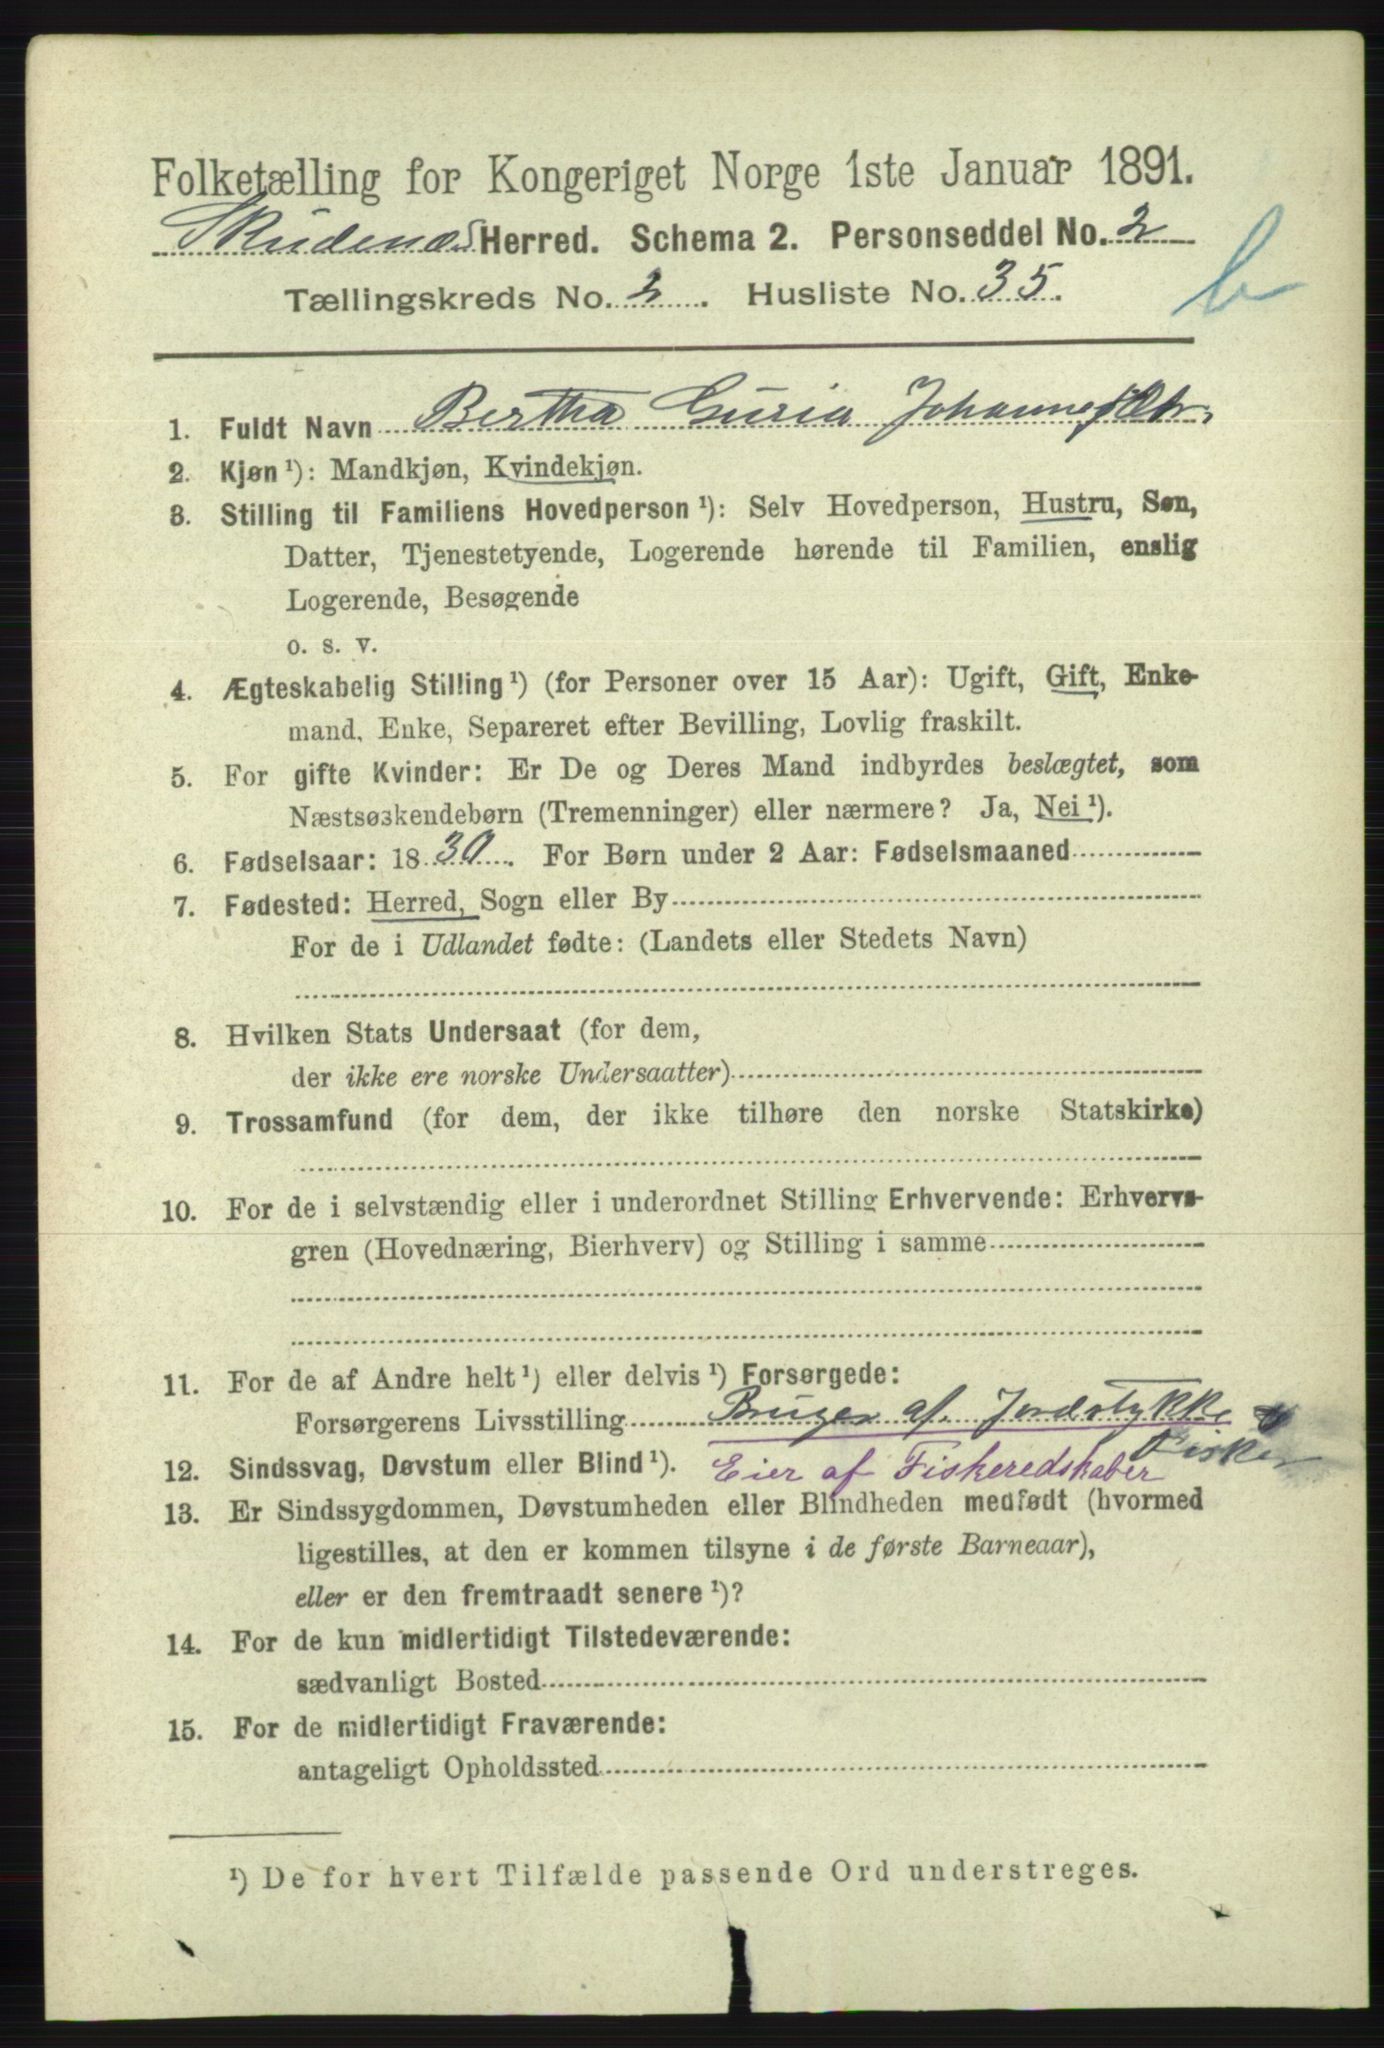 Folketælling for Kongeriget Norge 1ste Januar 1891.
Skudenæs Herred. Schema 2. Personseddel No. 2
Tællingskreds No. 2. Husliste No. 35.
b
1. Fuldt Navn Bertha Guria Johannesdtr.
2. Kjøn ¹): Mandkjøn, Kvindekjøn.
3. Stilling til Familiens Hovedperson ¹): Selv Hovedperson, Hustru, Søn,
Datter, Tjenestetyende, Logerende hørende til Familien, enslig
Logerende, Besøgende
o. s. v.
4. Ægteskabelig Stilling ¹) (for Personer over 15 Aar): Ugift, Gift, Enke-
mand, Enke, Separeret efter Bevilling, Lovlig fraskilt.
5. For gifte Kvinder: Er De og Deres Mand indbyrdes beslægtet, som
Næstsøskendebørn (Tremenninger) eller nærmere? Ja, Nei ¹).
6. Fødselsaar: 1830. For Børn under 2 Aar: Fødselsmaaned
7. Fødested: Herred, Sogn eller By
For de i Udlandet fødte: (Landets eller Stedets Navn)
8. Hvilken Stats Undersaat (for dem,
der ikke ere norske Undersaatter)
9. Trossamfund (for dem, der ikke tilhøre den norske Statskirke)
10. For de i selvstændig eller i underordnet Stilling Erhvervende: Erhvervs-
gren (Hovednæring, Bierhverv) og Stilling i samme
11. For de af Andre helt ¹) eller delvis ¹) Forsørgede:
Forsørgerens Livsstilling Bruger af Jordstykke &
Fisker
12. Sindssvag, Døvstum eller Blind ¹). Eier af Fiskeredskaber
13. Er Sindssygdommen, Døvstumheden eller Blindheden medfødt (hvormed
ligestilles, at den er kommen tilsyne i de første Barneaar),
eller er den fremtraadt senere ¹)?
14. For de kun midlertidigt Tilstedeværende:
sædvanligt Bosted
15. For de midlertidigt Fraværende:
antageligt Opholdssted
¹) De for hvert Tilfælde passende Ord understreges.